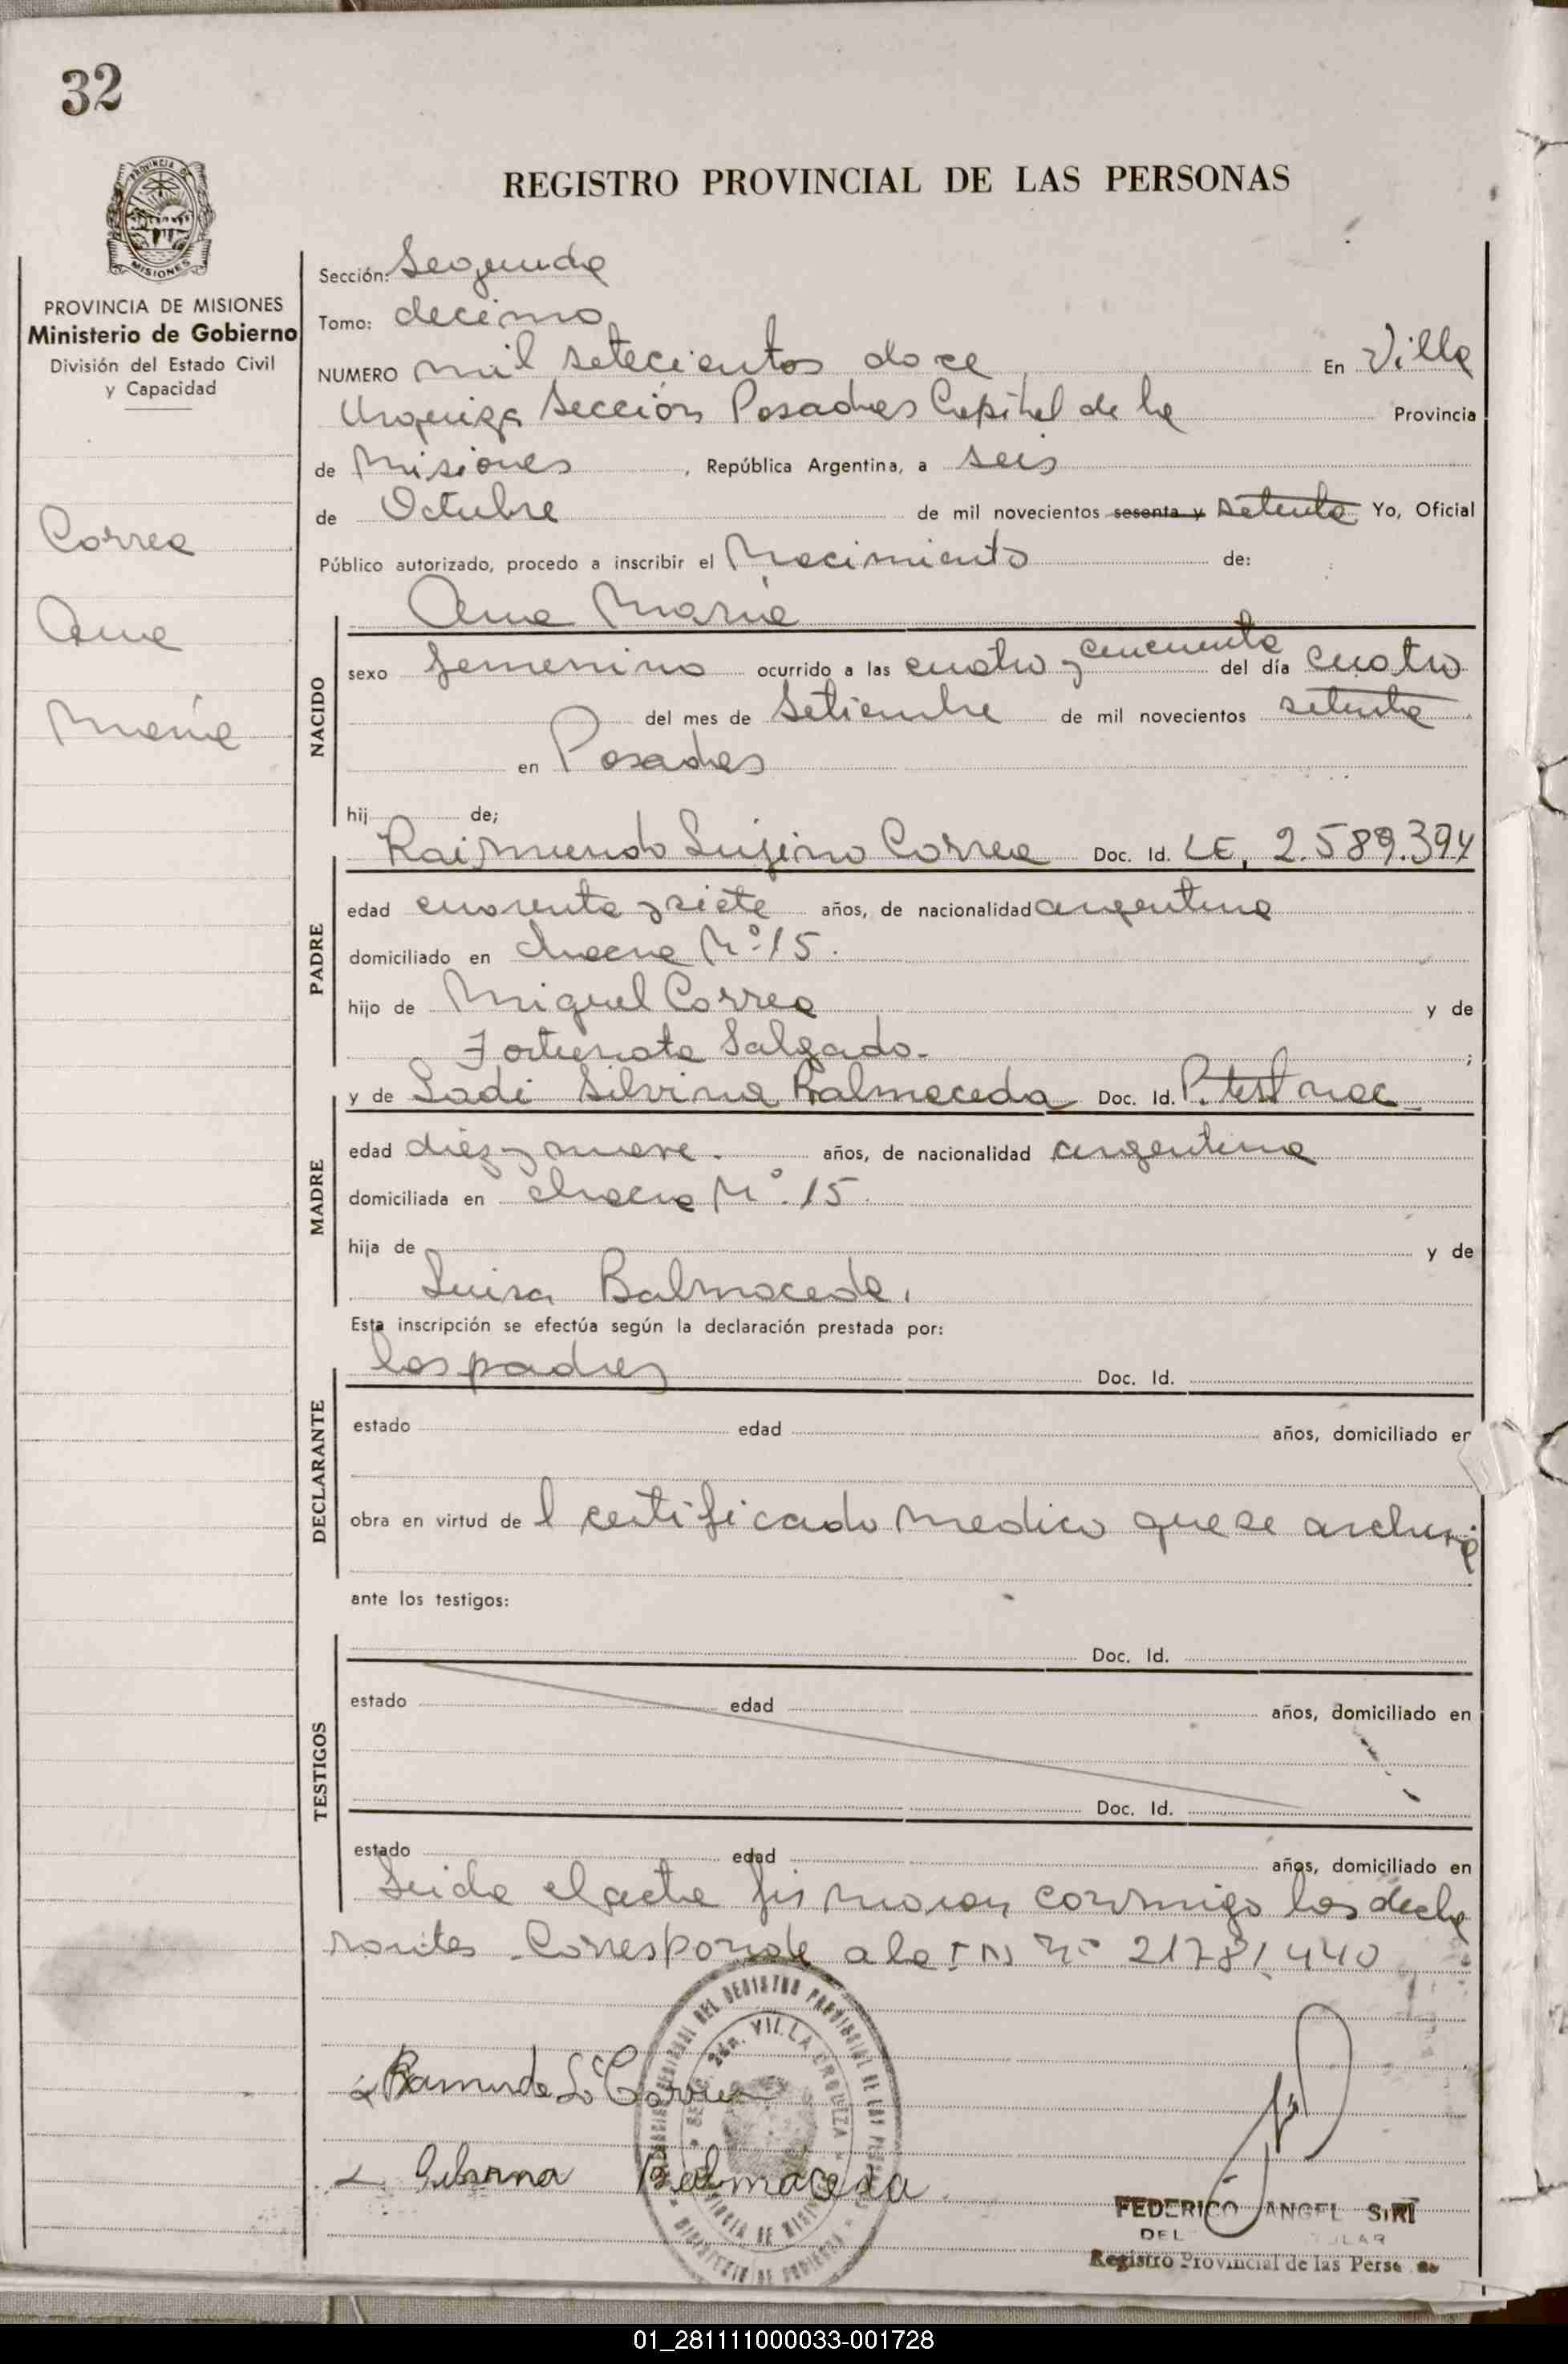 32
REGISTRO PROVINCIAL DE LAS PERSONAS
PROVINCIA DE MISIONES
Ministerio de Gobierno
División del Estado Civil
y Capacidad
Correa
Ana
María
Sección: Segunda
Tomo: decimo
NUMERO mil setecientos doce En Villa
Urquiza Sección Posadas Capital de la Provincia
de Misiones, República Argentina, a seis
de Octubre de mil novecientos sesenta y setenta Yo, Oficial
Público autorizado, procedo a inscribir el Nacimiento de:
Ana María
NACIDO
sexo femenino ocurrido a las cuatro y cincuenta del día cuatro
del mes de Setiembre de mil novecientos setenta
en Posadas
hij de;
Raimundo Lujino Correa Doc. Id. LE. 2.589.394
PADRE
edad cuarenta y siete años, de nacionalidad argentina
domiciliado en chacra Nº 15.
hijo de Miguel Correa y de
Fortunata Salgado.
y de Ladi Silvina Balmaceda Doc. Id. P. test nac
MADRE
edad diez y nueve. años, de nacionalidad argentina
domiciliada en chacra Nº. 15.
hija de y de
Luisa Balmaceda.
Esta inscripción se efectúa según la declaración prestada por:
los padres Doc. Id.
DECLARANTE
estado edad años, domiciliado en
obra en virtud de l certificado medico que se archiva
ante los testigos:
Doc. Id.
TESTIGOS
estado edad años, domiciliado en
Doc. Id.
estado edad años, domiciliado en
Leida el acta firmaron conmigo los decla
rantes Corresponde a la nº 21781440
Correa
Balmaceda
DEL REGISTRO PROVINCIAL DE LAS
VILLA URQUIZA
FEDERICO ANGEL SIRI
DEL
Registro Provincial de las Perso as
01_281111000033-001728